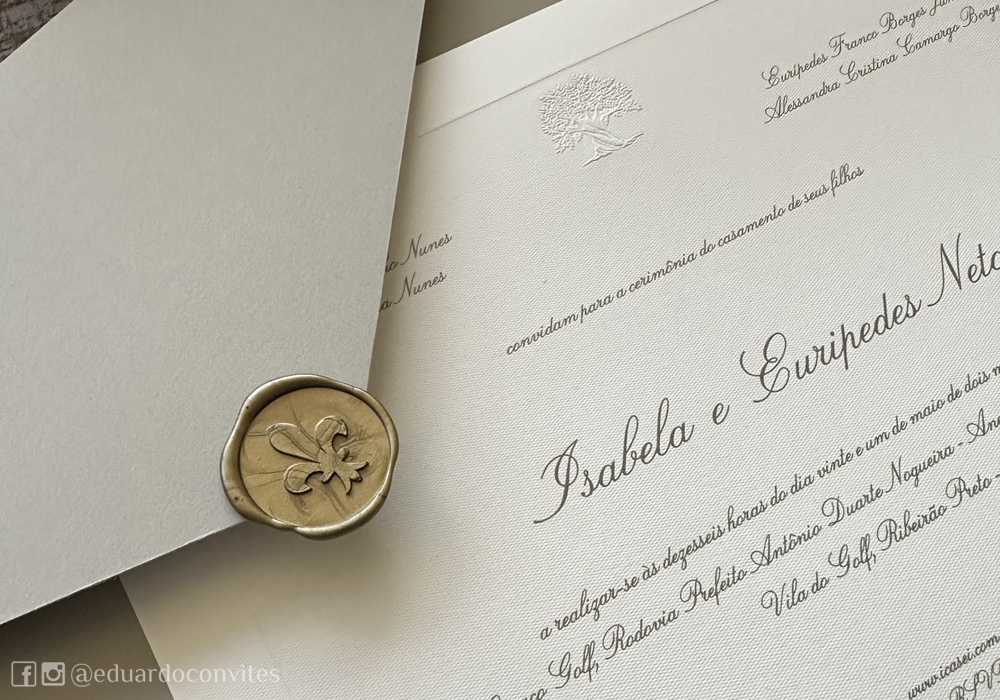 Eurípedes Franco Borges
Alessandra Cristina Camargo
Nunes
Nunes
convidam para a cerimônia do casamento de seus filhos
Isabela e Eurípedes Neto
a realizar-se às dezesseis horas do dia vinte e um de maio de dois
Golf, Rodovia Prefeito Antônio Duarte Nogueira -
Vila do Golf, Ribeirão Preto -
www.icasei.com
@eduardoconvites